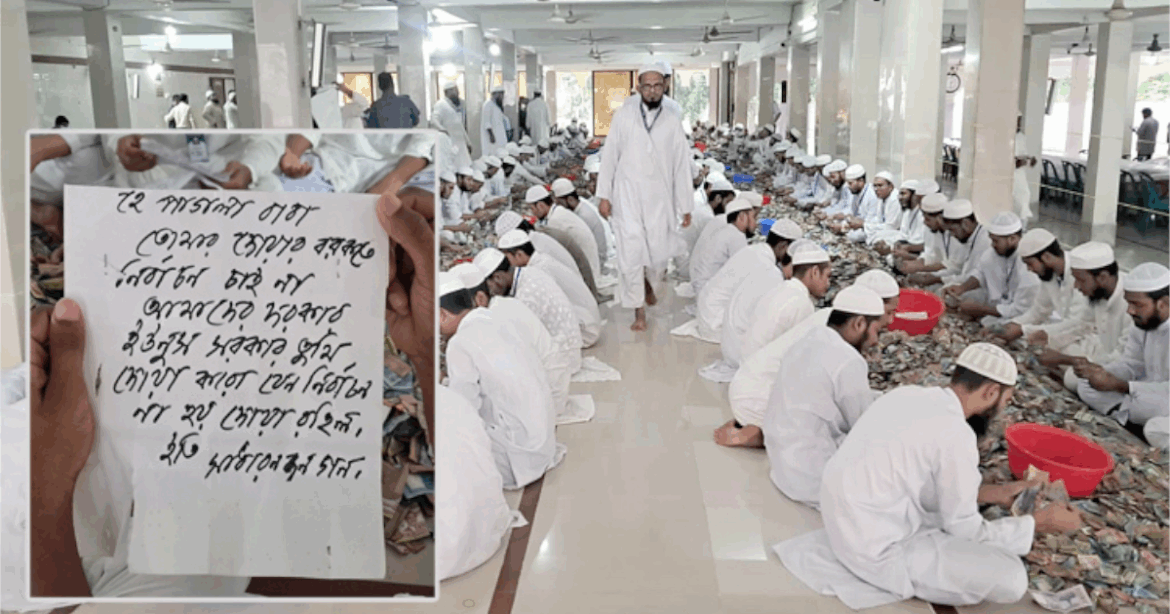 হে পাগলা বাবা
তোমার দোয়ার বরকতে
নির্বাচন চাই না
আমাদের দরকার
ইউনুস সরকার তুমি
দোয়া করো যেন নির্বাচন
না হয় দোয়া রইল,
ইতি সাধারন জনগন,